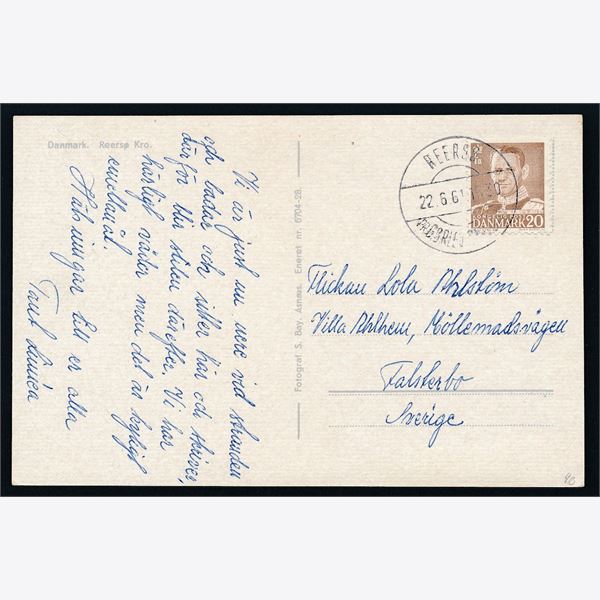 Danmark. Reersø Kro.
Vi är just nu nere vid stranden
och badar och sitter här och skriver,
därför blir stilen därefter. Vi har
härligt väder men det är kyligt
emellanåt.
Hälsningar till er alla
Tant
Fotograf S. Bay, Asnæs. Eneret nr. 6704-28.
REERSØ
22.6.61
GØRLEV
DANMARK 20
Flickan Lola Ahlstöm
Villa Ahlhem, Möllemadsvägen
Falsterbo
Sverige
40